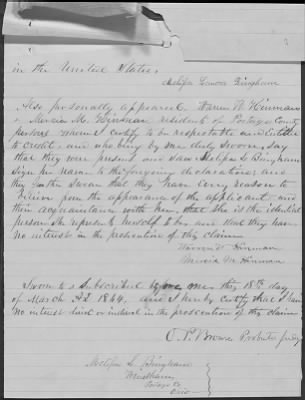 in the United States,
Melissa Lenora Bingham
Also personally appeared Warren W. Hinman
& Mercia M. Hinman residents of Portage County
persons whom I certify to be respectable and Entitled
to credit, and who being by me duly Sworn, say
that they were present and saw Melissa L. Bingham
Sign her name to the foregoing declaration, and
they further Swear that they have every reason to
believe from the appearance of the applicant and
their acquaintance with her, that She is the identical
person She represents herself to be and that they have
no interest in the prosecution of this claim
Warren W. Hinman
Mercia M Hinman
Sworn to & Subscribed before me this 18th day
of March AD 1864. and I hereby certify that I have
no interest direct or indirect in the prosecution of this claim
O. P. Brown Probate Judge
Melissa L. Bingham
Windham
Portage Co
Ohio